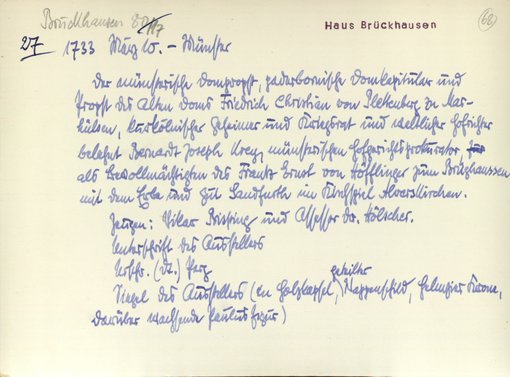 Brückhausen
Haus Brückhausen
68
27 1733 März 10. - Münster
Der münsterische Dompropst, paderbornische Domkapitular und
Propst des Alten Doms Friedrich Christian von Plettenberg zu Mar-
hülsen, kurkölnischer Geheimer und Kriegsrat und weltlicher Hofrichter
belehnt Bernardt Joseph Kreuz, münsterischen Hofgerichtsprokurator
als Bevollmächtigten des Frantz Ernst von Höfflinger zum Brüghaussen
mit dem Erbe und Gut Sandfurth im Kirchspiel Alverskirchen.
Zeugen: Vikar Brissing und Assessor Dr. Hölscher.
Unterschrift des Ausstellers
Urschr. (dt.) Perg
Siegel des Ausstellers (in Holzkapsel, geteilter Wappenschild, Helmzier Krone,
darüber wachsende Paulusfigur)